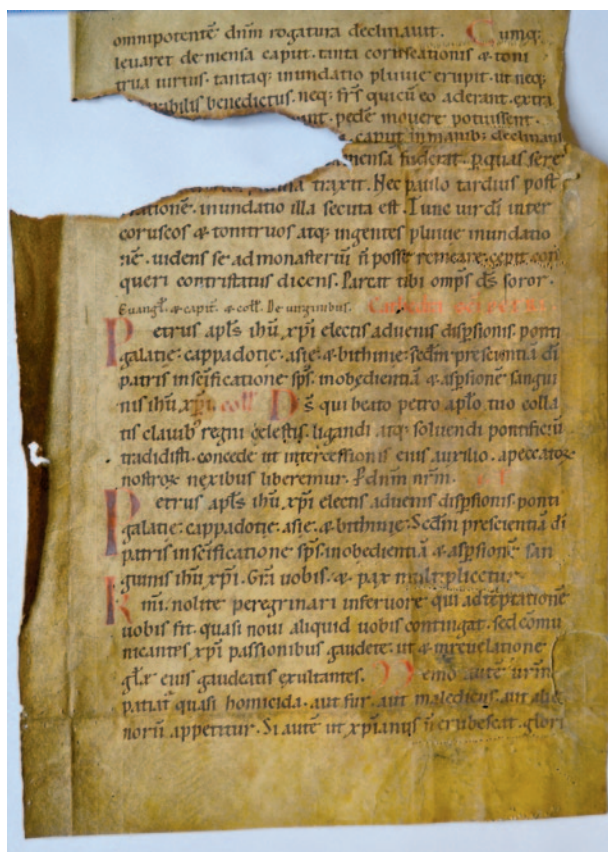 omnipotentē dnm̄ rogatura declinauit. Cumq;
leuaret de mensa caput. tanta coruscationis & toni
trua uirtus. tantaq; inundatio pluuie erupit. ut neq;
abilis benedictus. neq; fr̄s qui cū eo aderant. extra
ant. pedē mouere potuissent.
caput in manib; declinans
mensa fuderat. p quas sere
traxit. Nec paulo tardius post
ationē. inundatio illa secuta est. Tunc uir dī inter
coruscos & tonitruos atq; ingentes pluuie inundatio
nē. uidens se ad monasteriū n̄ posse remeare. cepit con
queri contristatus dicens. Parcat tibi omp̄s ds̄ soror.
Euangl̄. & capit̄. & coll̄. De uirginibus.
Petrus apl̄s ihū xp̄i electis aduenis disp̄sionis. ponti
galatie. cappadotie. asie. & bithinie. scdm̄ prescientiā dī
patris in sc̄ificatione sp̄s. in obedientiā & asp̄sionē sangui
nis ihū xp̄i. coll̄ Ds̄ qui beato petro aplo tuo colla
tis clauib; regni celestis. ligandi atq; soluendi pontificiū
tradidisti. concede ut intercessionis eius auxilio. a peccatoꝝ
nostroꝝ nexibus liberemur. P dnm̄ nrm̄.
Petrus apl̄s ihū xp̄i electis aduenis disp̄sionis. ponti
galatie. cappadotie. asie. & bithinie. Scdm̄ prescientiā dī
patris in sc̄ificatione sp̄s. in obedientiā & asp̄sionē san
guinis ihū xp̄i. Gr̄a uobis. & pax multiplicetur.
Kmi. nolite peregrinari in feruore qui ad tēptationē
uobis fit. quasi noui aliquid uobis contingat. sed comū
nicantes xp̄i passionibus gaudete. ut & in reuelatione
gl̄e eius gaudeatis exultantes. Nemo autē ur̄m
patiat̄ quasi homicida. aut fur. aut maledicus. aut alie
norū appetitur. Si autē ut xp̄ianus n̄ erubescat. glori